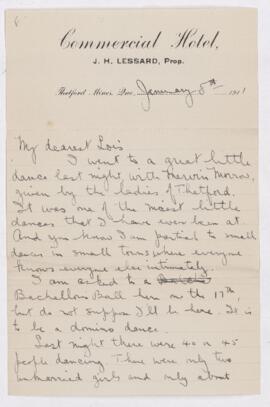 Commercial Hotel,
J. H. LESSARD, Prop.
Thetford Mines, Que, January 5th 1911
My dearest Lois
I went to a great little
dance last night with Merwin Morrow,
given by the ladies of Thetford.
It was one of the nicest little
dances that I have ever been at.
And you know I am partial to small
dances in small towns where everyone
knows everyone else intimately.
I am asked to a
Bachellors Ball here on the 17th,
but do not suppose I'll be here. It is
to be a domino dance.
Last night there were 40 or 45
people dancing. There were only two
unmarried girls and only about